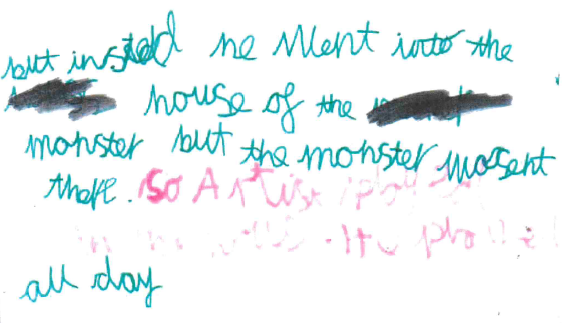 but insted he Went into the
house of the
monster but the monster wasent
there. So
in the
all day